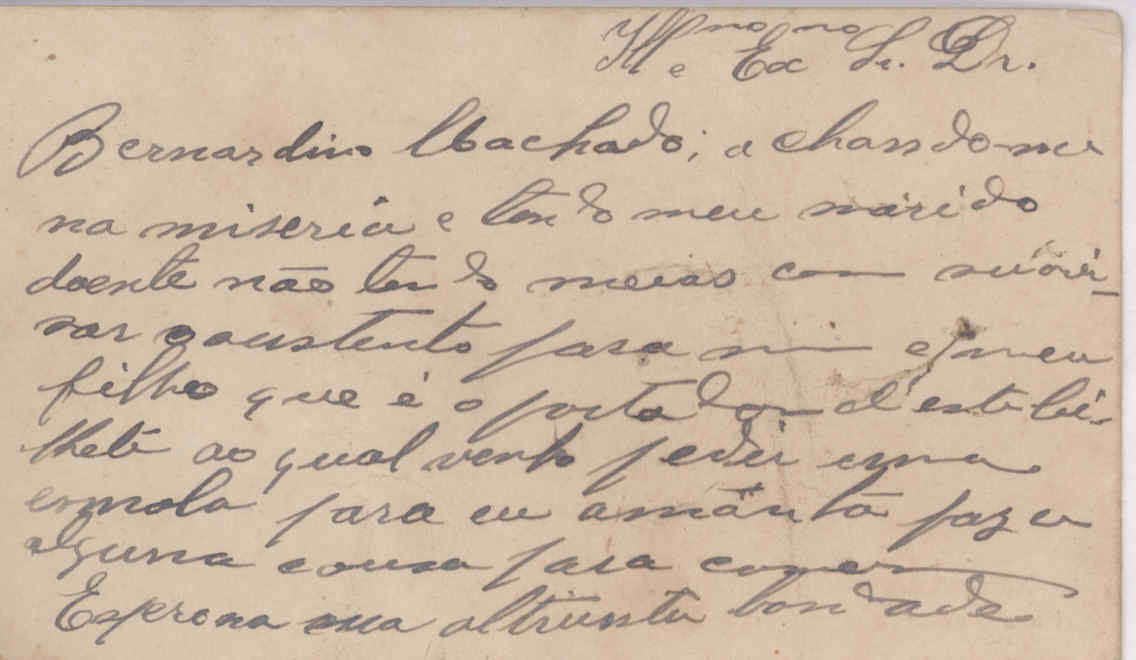 Illmo e Exmo Sr. Dr.
Bernardino Machado, achando-me
na miseria e tendo meu marido
doente não tendo meios com
o sustento para mim e meu
filho que é o portador d'este bi-
lhete ao qual venho pedir uma
esmola para eu fazer
alguma cousa para comer
Espero na sua bondade